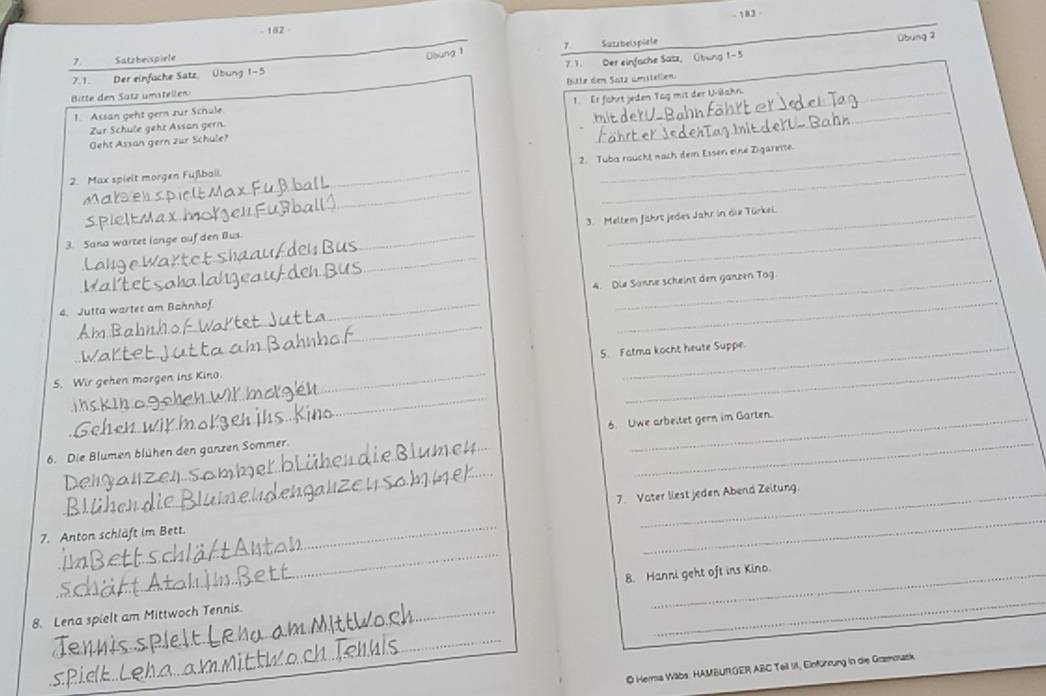 - 182 -
7. Satzbeispiele Übung 1
7.1. Der einfache Satz, Übung 1-5
Bitte den Satz umstellen:
1. Assan geht gern zur Schule.
Zur Schule geht Assan gern.
Geht Assan gern zur Schule?
2. Max spielt morgen Fußball.
Morgen spielt Max Fußball
spielt Max morgen Fußball?
3. Sana wartet lange auf den Bus.
Lange wartet shaauf den Bus
Wartet sana lange auf den Bus
4. Jutta wartet am Bahnhof.
Am Bahnhof wartet Jutta
Wartet Jutta am Bahnhof
5. Wir gehen morgen ins Kino.
ins Kino gehen wir morgen
Gehen wir morgen ins Kino
6. Die Blumen blühen den ganzen Sommer.
Den ganzen sommer blühen die Blumen
Blühen die Blumen den ganzen sommer
7. Anton schläft im Bett.
im Bett schläft Anton
schäft Aton im Bett
8. Lena spielt am Mittwoch Tennis.
Tennis spielt Lena am Mittwoch
spielt Lena am Mittwoch Tennis
- 183 -
7. Satzbeispiele Übung 2
7.1. Der einfache Satz, Übung 1-5
Bitte den Satz umstellen:
1. Er fährt jeden Tag mit der U-Bahn.
mit der U-Bahn fährt er Jeden Tag
fährt er Jeden Tag mit der U-Bahn
2. Tuba raucht nach dem Essen eine Zigarette.
3. Meltem fährt jedes Jahr in die Türkei.
4. Die Sonne scheint den ganzen Tag.
5. Fatma kocht heute Suppe.
6. Uwe arbeitet gern im Garten.
7. Vater liest jeden Abend Zeitung.
8. Hanni geht oft ins Kino.
© Herma Wäbs: HAMBURGER ABC Teil III, Einführung in die Grammatik